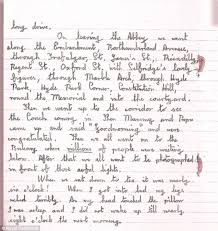 long drive.
On leaving the Abbey, we went
along the Embankment, Northumberland Avenue,
through Trafalgar St, James's St., Piccadilly
Regent St., Oxford St. with Selfridge's lovely
figures, through Marble Arch, through Hyde
Park, Hyde Park Corner, Constitution Hill,
round the Memorial and into the courtyard.
Then we went up to the corridor to see
the Coach coming in. Then Mummy and Papa
came up and said goodmorning and were
congratulated. Then we all went on to the
Balcony where millions of people were waiting
below. After that we all went to be photographed
in front of those awful lights.
When we sat down to tea it was nearly
six o'clock! When I got into bed my legs
ached terribly. As my head touched the pillow
I was asleep and I did not wake up till nearly
eight o'clock the next morning.